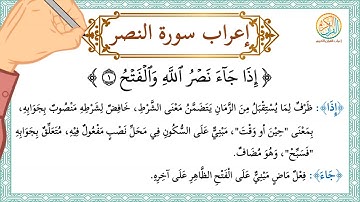 إعراب سورة النصر
﴿ إِذَا جَآءَ نَصْرُ اللَّهِ وَالْفَتْحُ ١ ﴾
﴿إِذَا﴾: ظَرْفٌ لِمَا يُسْتَقْبَلُ مِنَ الزَّمَانِ يَتَضَمَّنُ مَعْنَى الشَّرْطِ، خَافِضٌ لِشَرْطِهِ مَنْصُوبٌ بِجَوَابِهِ،
بِمَعْنَى "حِيْنَ أَو وَقْتَ"، مَبْنِيٌّ عَلَى السُّكُونِ فِي مَحَلِّ نَصْبٍ مَفْعُولٌ فِيْهِ، مُتَعَلِّقٌ بِجَوَابِهِ
"فَسَبِّحْ"، وَهُوَ مُضَافٌ.
﴿جَآءَ﴾: فِعْلٌ مَاضٍ مَبْنِيٌّ عَلَى الْفَتْحِ الظَّاهِرِ عَلَى آخِرِهِ.